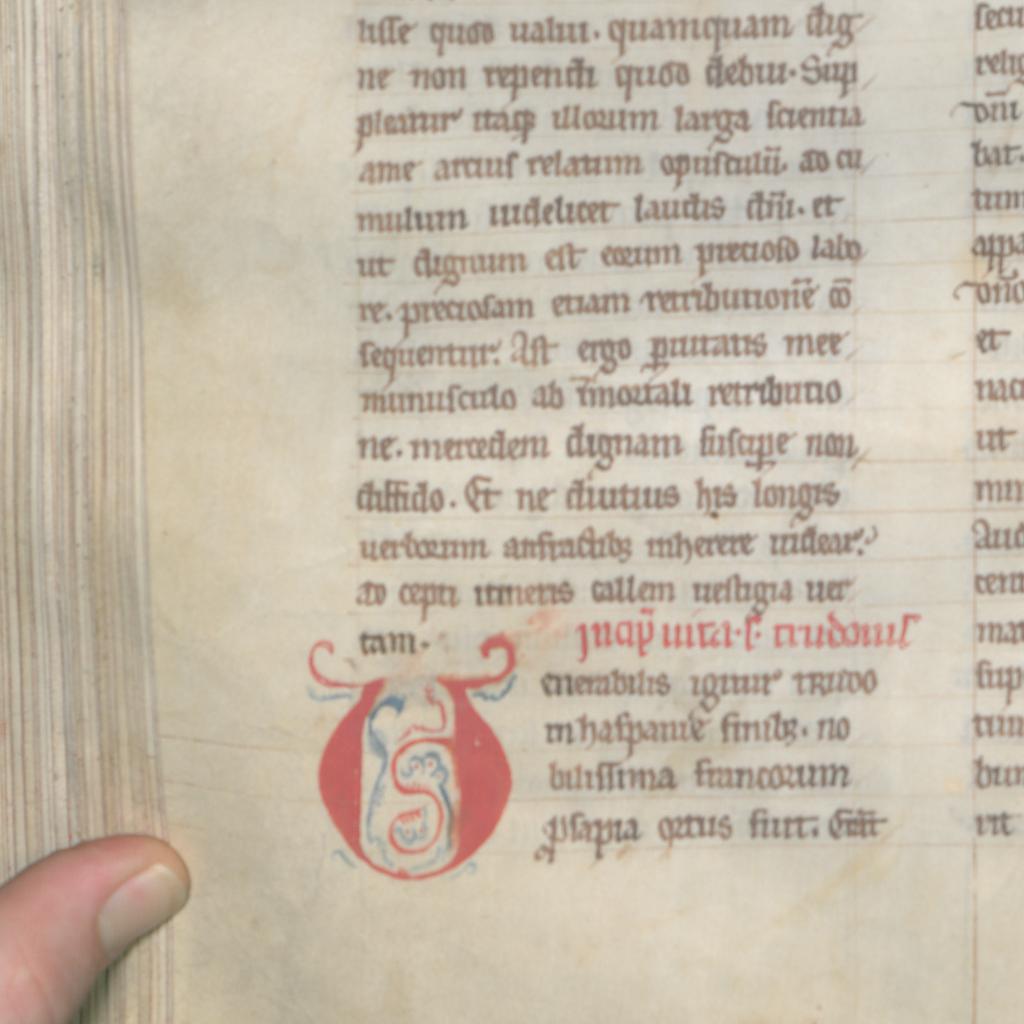 lisse quod ualui. quamquam dig
ne non rependi quod debui. Sup
pleatur itaq; illorum larga scientia
a me artius relatum opusculū. ad cu
mulum uidelicet laudis dn̄i. et
ut dignum est eorum precioso labo
re. preciosam etiam retributionē cō
sequentur. Ast ergo ꝑuitatis mee
munusculo ab īmortali retributio
ne. mercedem dignam suscipe non
diffido. Et ne diutius his longis
uerborum anfractib; inherere uidear.
ad cepti itineris callem uestigia uer
tam.
Incip̄ uita. s. trudonis
Venerabilis igitur TRUDO
in haspanie finib;. no
bilissima francorum
ꝓsapia ortus fuit.
secu
relig
bat.
tum
appa
et
naci
ut
Aud
cent
mat
sup
tuu
bun
rit